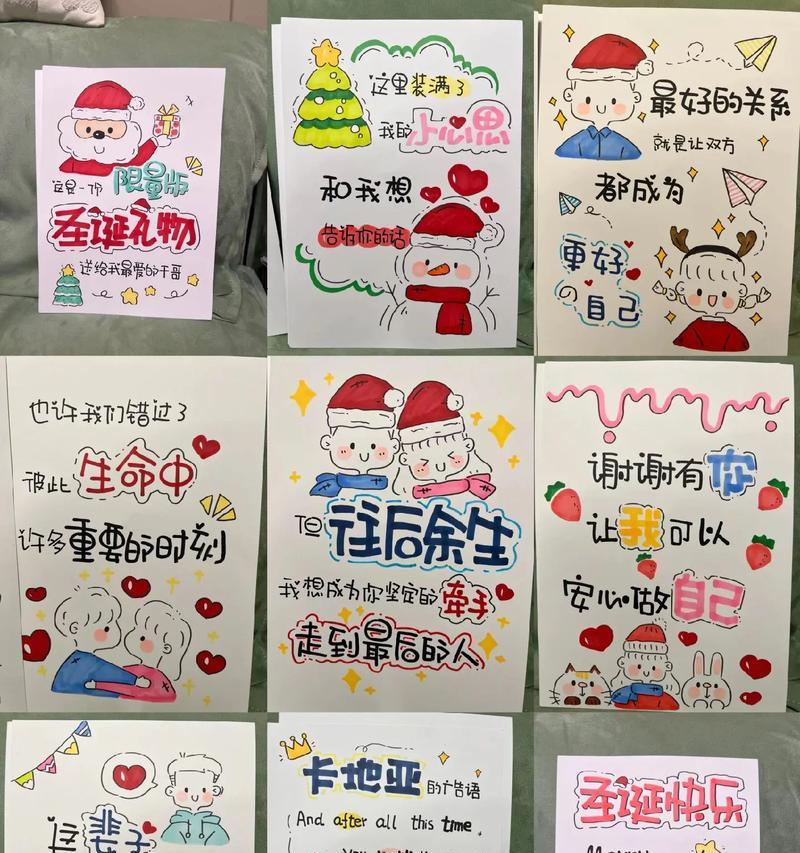 这是一份
限量版
圣诞礼物
送给我最爱的干哥
这里装满了
我的小心思
和我想
告诉你的话
最好的关系
就是让双方
都成为
更好
の自己
也许我们错过了
彼此生命中
许多重要的时刻
但往后余生
我想成为你坚定的牵手
走到最后的人
谢谢有你
让我可以
安心做自己
这辈子
卡地亚的广告语
And after all this time,
圣诞快乐